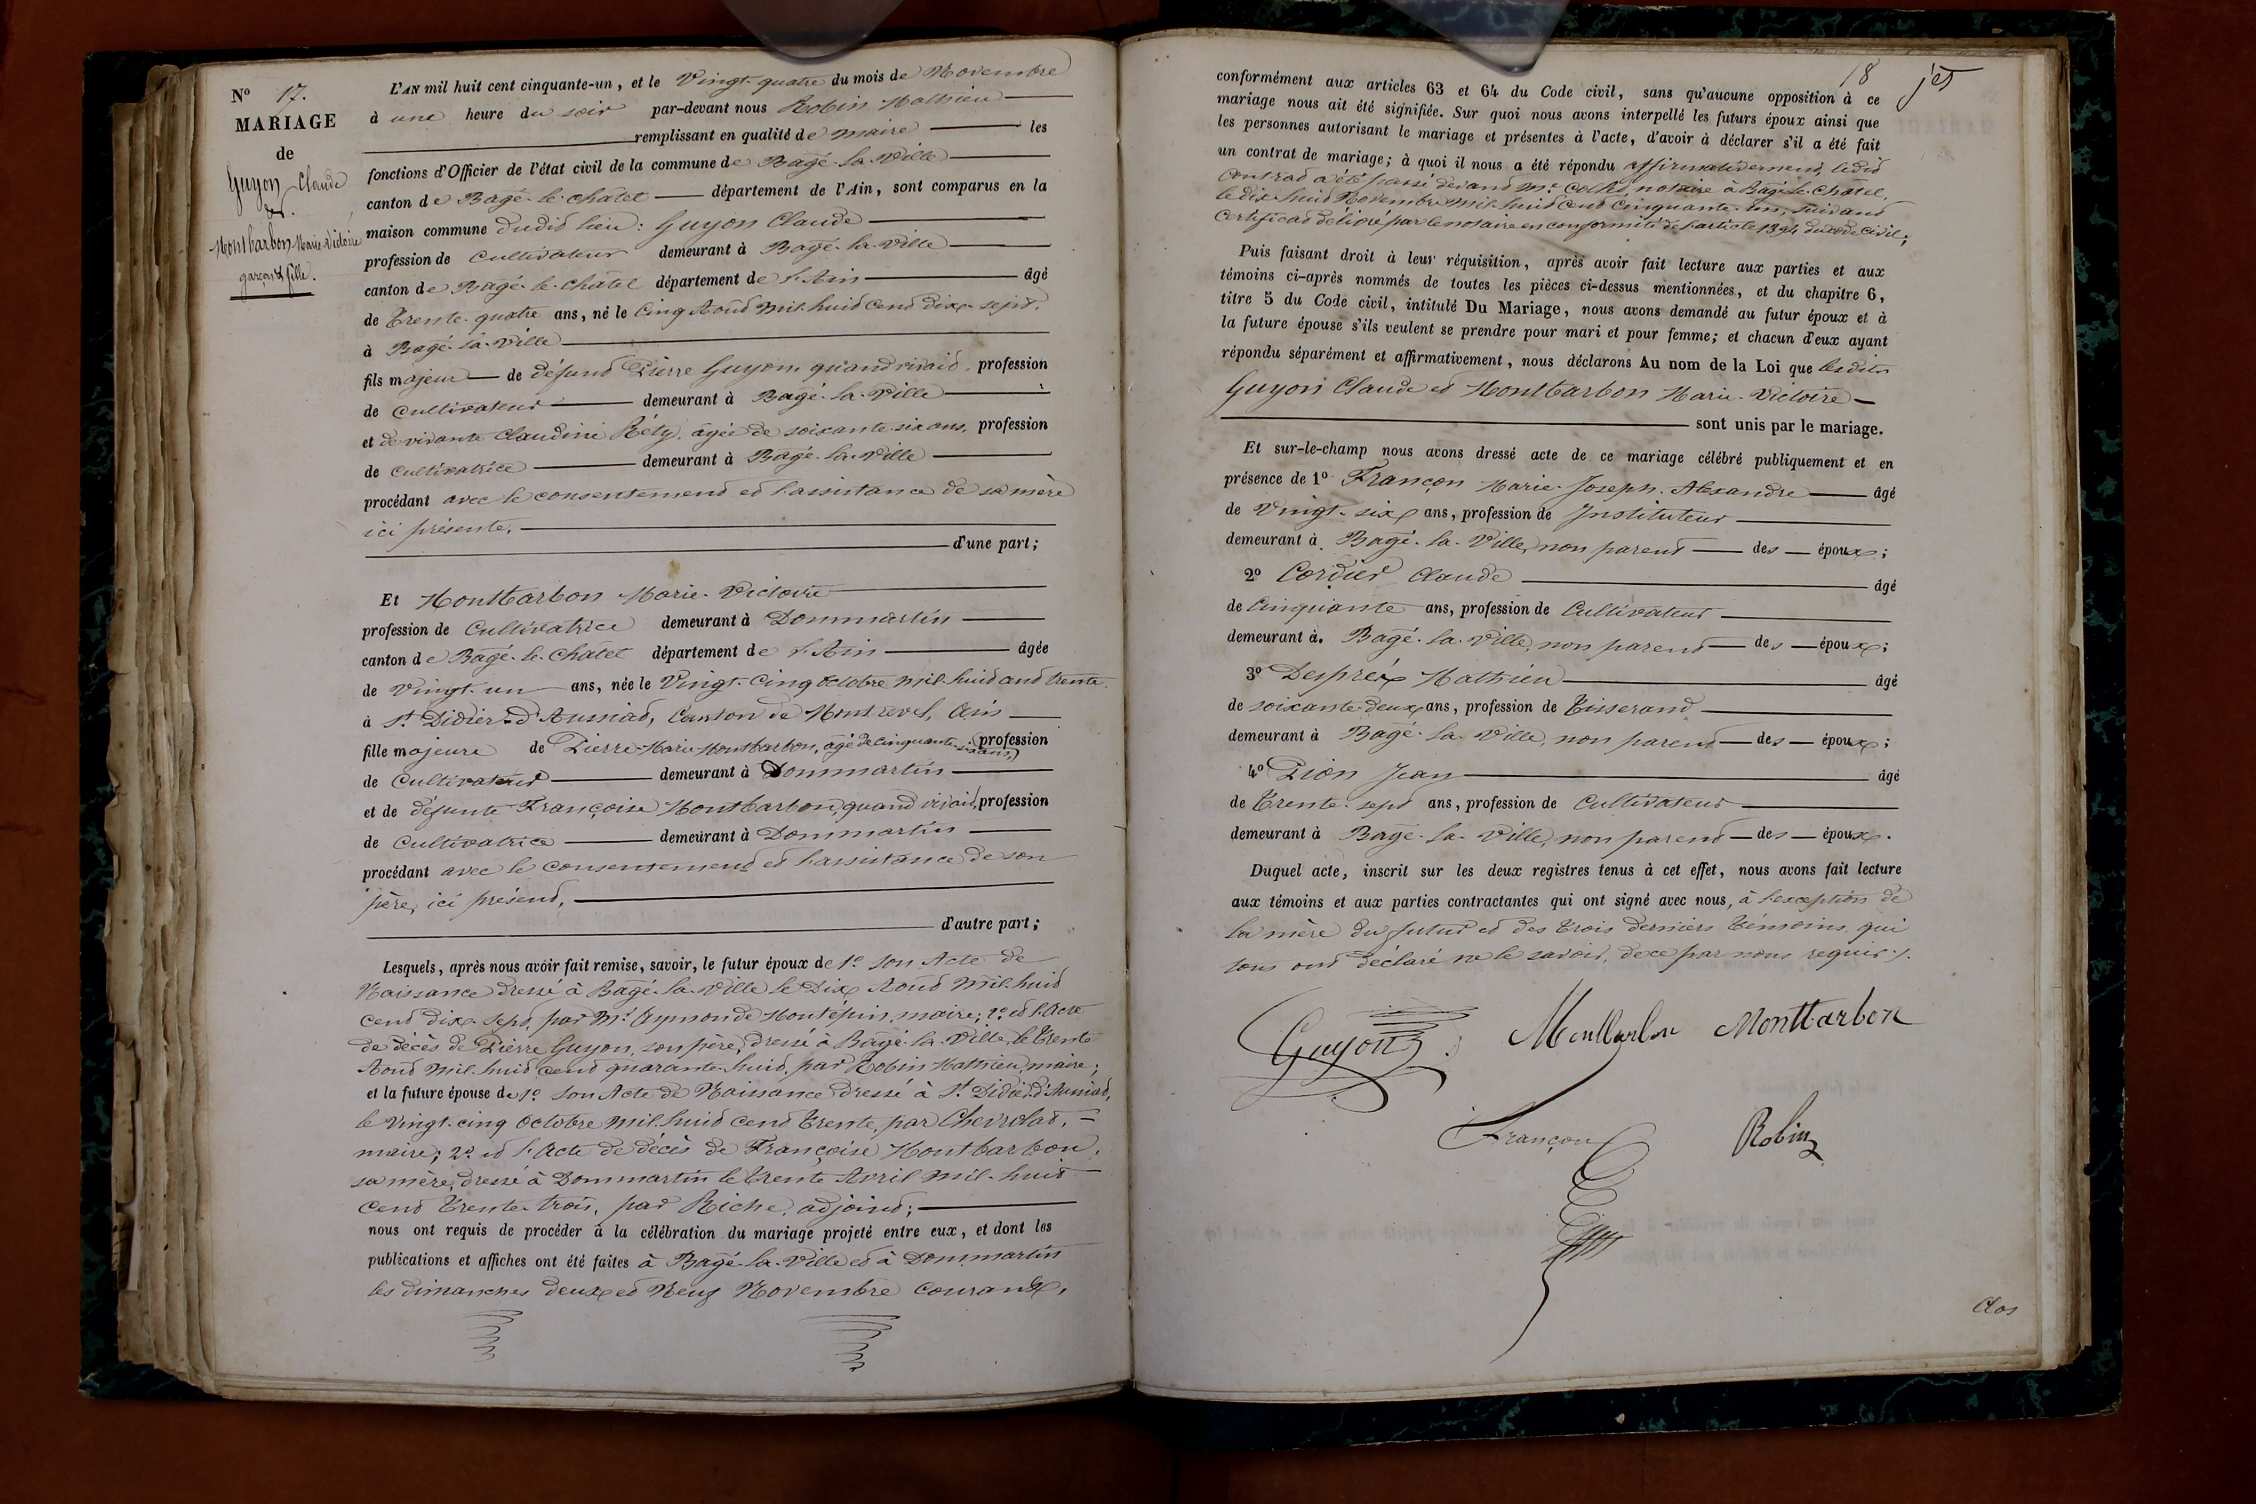 N° 17.
MARIAGE
de
Guyon Claude
et
Montbarbon Marie-Victoire
garçon & fille.
L'AN mil huit cent cinquante-un, et le Vingt-quatre du mois de Novembre
à une heure du soir par-devant nous Robin Mathieu
remplissant en qualité de maire les
fonctions d'Officier de l'état civil de la commune de Bagé-la-Ville
canton de Bagé-le-châtel département de l'Ain, sont comparus en la
maison commune dudit lieu: Guyon Claude
profession de Cultivateur demeurant à Bagé-la-Ville
canton de Bagé-le-châtel département de l'Ain âgé
de Trente-quatre ans, né le Cinq Août mil-huit Cent dix-sept.
à Bagé-la-Ville
fils majeur de défunt Pierre Guyon, quand vivait, profession
de Cultivateur demeurant à Bagé-la-Ville
et de vivante Claudine Réty, âgée de soixante-six ans, profession
de Cultivatrice demeurant à Bagé-la-Ville
procédant avec le consentement et l'assistance de sa mère
ici présente,
d'une part;
Et Montbarbon Marie-Victoire
profession de Cultivatrice demeurant à Dommartin
canton de Bagé-le-châtel département de l'Ain âgée
de Vingt-un ans, née le Vingt-Cinq octobre mil-huit cent trente
à St Didier-d'Aussiat, Canton de Montrevel, Ain
fille majeure de Pierre-Marie Montbarbon, âgé de cinquante-six ans, profession
de Cultivateur demeurant à Dommartin
et de défunte Françoise Montbarbon, quand vivait, profession
de Cultivatrice demeurant à Dommartin
procédant avec le consentement et l'assistance de son
père, ici présent,
d'autre part;
Lesquels, après nous avoir fait remise, savoir, le futur époux de 1° son Acte de
Naissance dressé à Bagé-la-Ville le Dix Août mil-huit
cent dix-sept, par Mr Aymon de Montépin, maire; 2° et l'Acte
de décès de Pierre Guyon, son père, dressé à Bagé-la-Ville, le trente
Août mil-huit cent quarante-huit, par Robin Mathieu, maire;
et la future épouse de 1° son Acte de Naissance dressé à St Didier-d'Aussiat,
le Vingt-cinq Octobre mil-huit cent trente, par Chevrolat,
maire; 2° et l'Acte de décès de Françoise Montbarbon,
sa mère, dressé à Dommartin le trente Avril mil-huit
cent trente-trois, par Riche, adjoint;
nous ont requis de procéder à la célébration du mariage projeté entre eux, et dont les
publications et affiches ont été faites à Bagé-la-Ville et à Dommartin
les dimanches deux et Neuf Novembre courant,
18
conformément aux articles 63 et 64 du Code civil, sans qu'aucune opposition à ce
mariage nous ait été signifiée. Sur quoi nous avons interpellé les futurs époux ainsi que
les personnes autorisant le mariage et présentes à l'acte, d'avoir à déclarer s'il a été fait
un contrat de mariage; à quoi il nous a été répondu affirmativement, ledit
Contrat a été passé devant Me notaire à Bagé-le-Châtel,
le dix-huit Novembre mil-huit cent cinquante-un, suivant
Certificat délivré par le notaire en conformité de l'article 1394 du code civil;
Puis faisant droit à leur réquisition, après avoir fait lecture aux parties et aux
témoins ci-après nommés de toutes les pièces ci-dessus mentionnées, et du chapitre 6,
titre 5 du Code civil, intitulé Du Mariage, nous avons demandé au futur époux et à
la future épouse s'ils veulent se prendre pour mari et pour femme; et chacun d'eux ayant
répondu séparément et affirmativement, nous déclarons Au nom de la Loi que lesdits
Guyon Claude et Montbarbon Marie-Victoire
sont unis par le mariage.
Et sur-le-champ nous avons dressé acte de ce mariage célébré publiquement et en
présence de 1° Françon Marie-Joseph-Alexandre âgé
de Vingt-six ans, profession de Instituteur
demeurant à Bagé-la-Ville, non parent des époux;
2° Cordier Claude âgé
de Cinquante ans, profession de Cultivateur
demeurant à Bagé-la-Ville, non parent des époux;
3° Després Mathieu âgé
de soixante-deux ans, profession de Tisserand
demeurant à Bagé-la-Ville, non parent des époux;
4° Pion Jean âgé
de Trente-sept ans, profession de Cultivateur
demeurant à Bagé-la-Ville, non parent des époux.
Duquel acte, inscrit sur les deux registres tenus à cet effet, nous avons fait lecture
aux témoins et aux parties contractantes qui ont signé avec nous, à l'exception de
la mère du futur et des trois derniers témoins, qui
tous ont déclaré ne le savoir, de ce par nous requis.
Guyon Montbarbon Montbarbon
Françon Robin
Clos